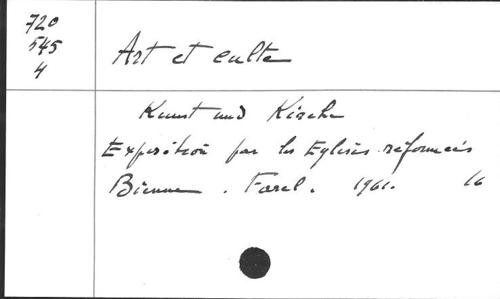 720
545
4
Art et culte
Kunst und Kirche
Exposition par les Eglises réformées
Bienne. Farel. 1961. 16